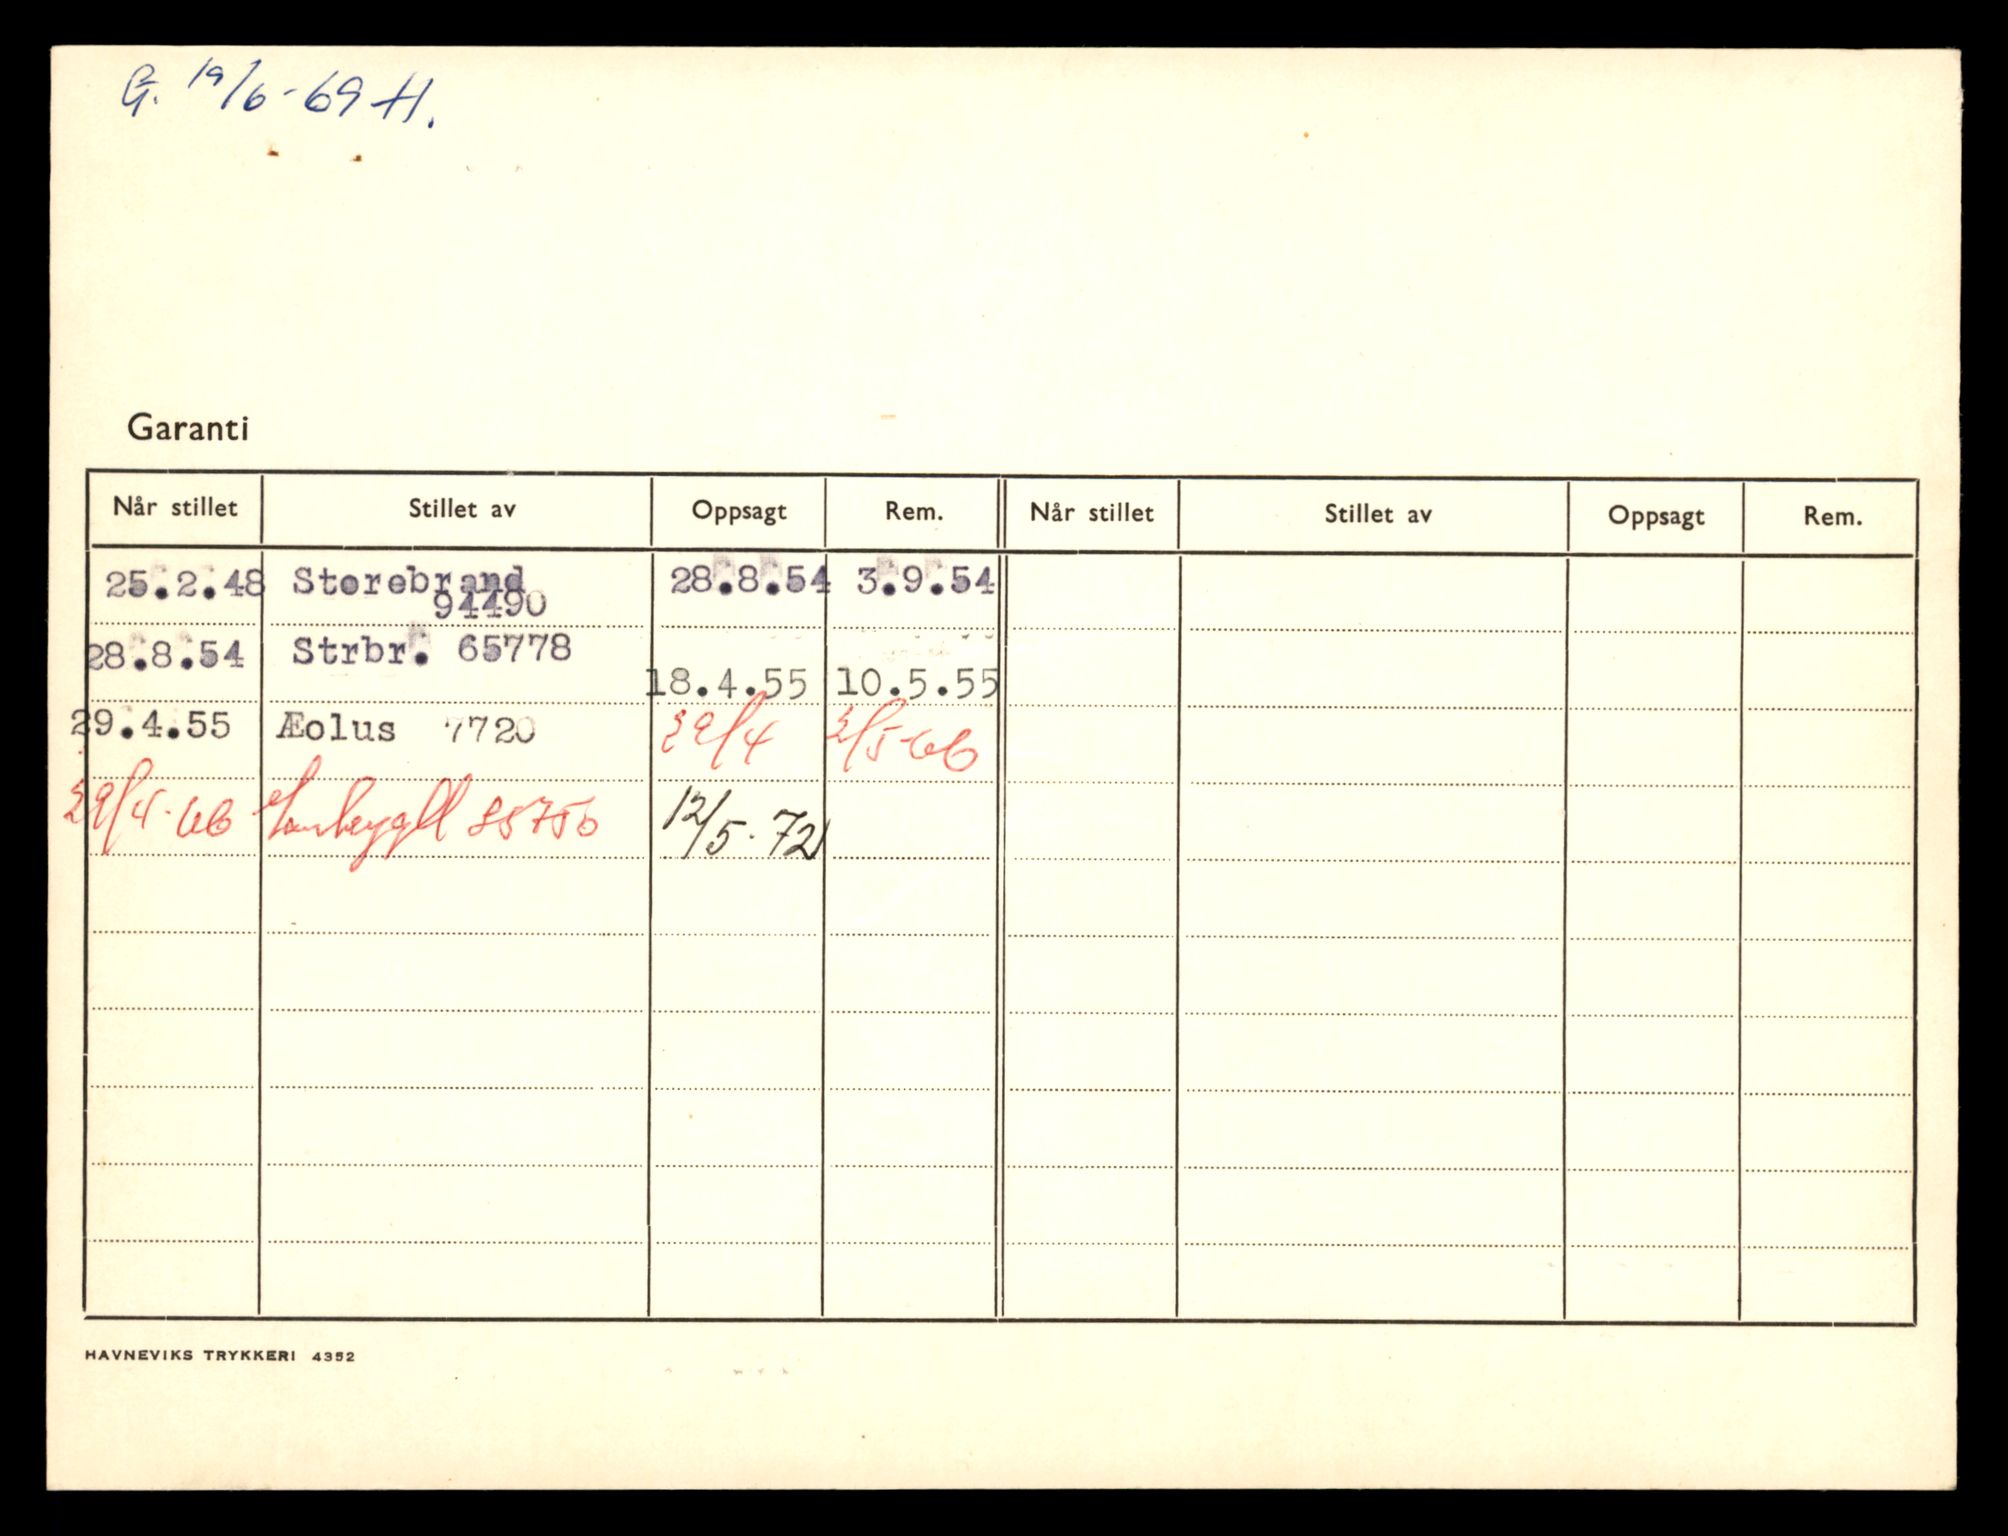 G. 19/6-69 H.
Garanti
Når stillet Stillet av Oppsagt Rem. Når stillet Stillet av Oppsagt Rem.
25.2.48 Storebrand 28.8.54 3.9.54
94490
28.8.54 Strbr. 65778
18.4.55 10.5.55
29.4.55 Æolus 7720 29/4 2/5-66
29/4-66 85756 12/5-72
HAVNEVIKS TRYKKERI 4352